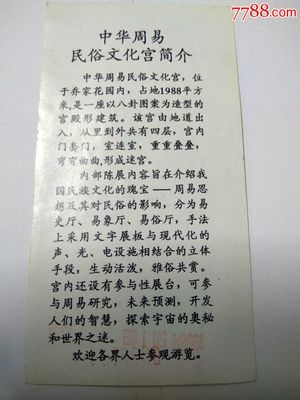 7788.com
中华周易
民俗文化宫简介
中华周易民俗文化宫，位
于乔家花园内，占地1988平方
米，是一座以八卦图案为造型的
宫殿形建筑。该宫由地道出
入，从里到外共有四层，宫内
门套门，室连室，重重叠叠，
弯弯曲曲，形成迷宫。
内部陈展内容旨在介绍我
国民族文化的瑰宝——周易思
想及其对民俗的影响，分为易
史厅、易象厅、易俗厅，手法
上采用文字展板与现代化的
声、光、电设施相结合的立体
手段，生动活泼，雅俗共赏。
宫内还设有参与性展台，可参
与周易研究，未来预测，开发
人们的智慧，探索宇宙的奥秘
和世界之谜。
欢迎各界人士参观游览。